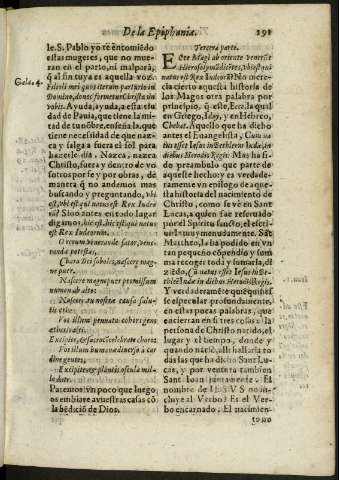 De la Epiphania.
291
le. S. Pablo yo te encomiẽdo
estas mugeres, que no mue-
ran en el parto, ni malparã,
q̃ al fin tuya es aquella voz.
Gala. 4.
Filioli mei quos iterum parturio in
Domino, donec formetur Christus in
vobis. Ayuda, ayuda, a esta ciu
dad de Pauia, que tiene la mi-
tad de tu nõbre, enseña la, que
tiene necessidad de que naz-
ca y salga a fuera el sol para
hazerle dia. Nazca, nazca
Christo, fuera y dentro de vo
sotros por fe y por obras, de
manera q̃ no andemos mas
buscando y preguntando, vbi
est, vbi est qui natus est Rex Iudeo
rum? Sino antes en todo lugar
digamos, hic est, hic est qui natus
est Rex Iudeorum.
O rerum venerande sator, vene-
randa potestas,
Chara Dei soboles, nascere mag-
ne puer.
Nascere magneque promissum
numen ab alto:
Nascere au nostra causa salu-
tis
Vos illum pennata cohors
Vos illum humana
Excipite & plantis oscula mil-
le date.
Paremos vn poco que luego
os embiare a vuestras casas cõ
la bẽdiciõ de Dios.
Tercera parte.
Ecce Magi ab oriente venerũt
Hierosolymã dicẽtes, vbi est qui
natus est Rex Iudeorũ? No mere-
cia cierto aquesta historia de
los Magos otra palabra por
principio, q̃ este, Ecce, la qual
en Griego, Iday, y en Hebreo,
Aquello que ha dicho
antes el Euangelista, Cum na-
tus esset Iesus in Bethleem Iudæ, in
diebus Herodis Regis: Mas ha si-
do preambulo que parte de
aqueste hecho; y es verdadera-
mente vn epilogo de aque-
lla historia del nacimiento de
Christo, como se vè en Sant
Lucas, a quien fue reseruado
por el Spiritu sancto, el escri-
uirla
Mattheo, la ha podido en vn
tan pequeño cõpendio y sum
ma recoger toda y sumarla, di
ziẽdo, Cũ natus esset Iesus in Be-
thleẽ Iude in diebus Herodis regis.
Y verdaderamẽte que quien
se especular profundamente,
en estas pocas palabras, que
encierran en si tres cosas: la
persona de Christo nacido, el
lugar y el tiempo, donde y
quando naciò, alli hallarà to
do las que ha dicho Sant Lu-
cas, y por ventura tambien
Sant Ioan juntamente. El
nombre de IESVS no in-
cluye al Verbo? Es el Ver-
bo encarnado. El nacimien-
to no